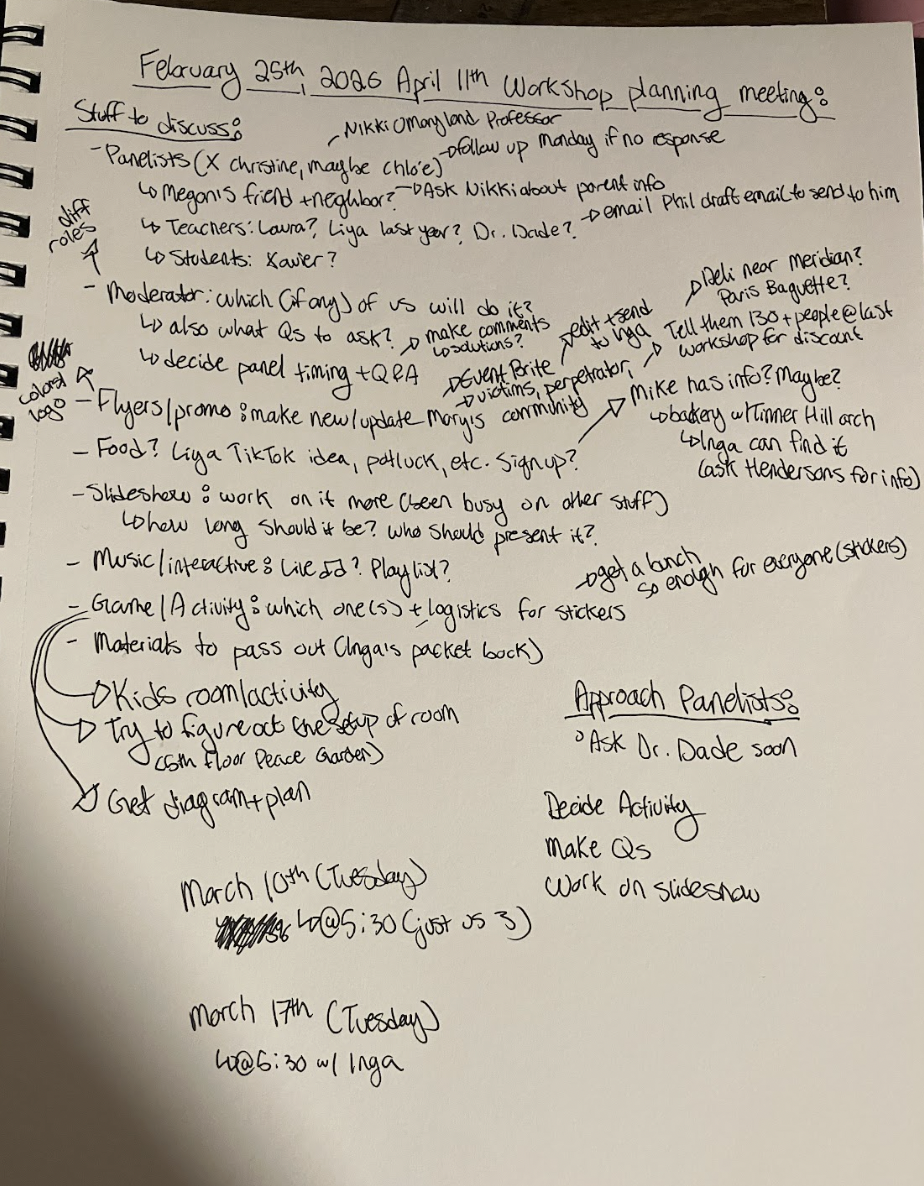 February 25th, 2026 April 11th Workshop planning meeting:
Stuff to discuss:
Nikki O Maryland Professor
- Panelists (X christine, maybe chloé) → follow up Monday if no response
↳ Megan's friend + neighbor? → Ask Nikki about parent info
↳ Teachers: Laura? Liya last year? Dr. Dade? → email Phil draft email to send to him
↳ Students: Xavier?
diff roles
- Moderator: which (if any) of us will do it?
↳ also what Qs to ask? → make comments
↳ solutions?
↳ decide panel timing + Q&A
colored logo
- Flyers/promo: make new/update Mary's
→ Event Brite
→ victims, perpetrator, community
→ edit + send to Inga
→ Deli near Meridian?
Paris Baguette?
→ Tell them 130+ people @ last workshop for discount
- Food? Liya TikTok idea, potluck, etc. Signup?
→ Mike has info? Maybe?
↳ bakery w/ Tinner Hill arch
↳ Inga can find it
(ask Hendersons for info)
- Slideshow: work on it more (been busy on other stuff)
↳ how long should it be? Who should present it?
- Music/interactive: Live ♫? Playlist?
- Game/Activity: which one(s) + logistics for stickers
→ get a bunch
so enough for everyone (stickers)
- Materials to pass out (Inga's packet back)
→ Kids room/activity
→ Try to figure out the setup of room
(5th floor Peace Garden)
→ Get diagram + plan
Approach Panelists:
° Ask Dr. Dade soon
Decide Activity
Make Qs
Work on slideshow
March 10th (Tuesday)
↳ @ 5:30 (just us 3)
March 17th (Tuesday)
↳ @ 5:30 w/ Inga